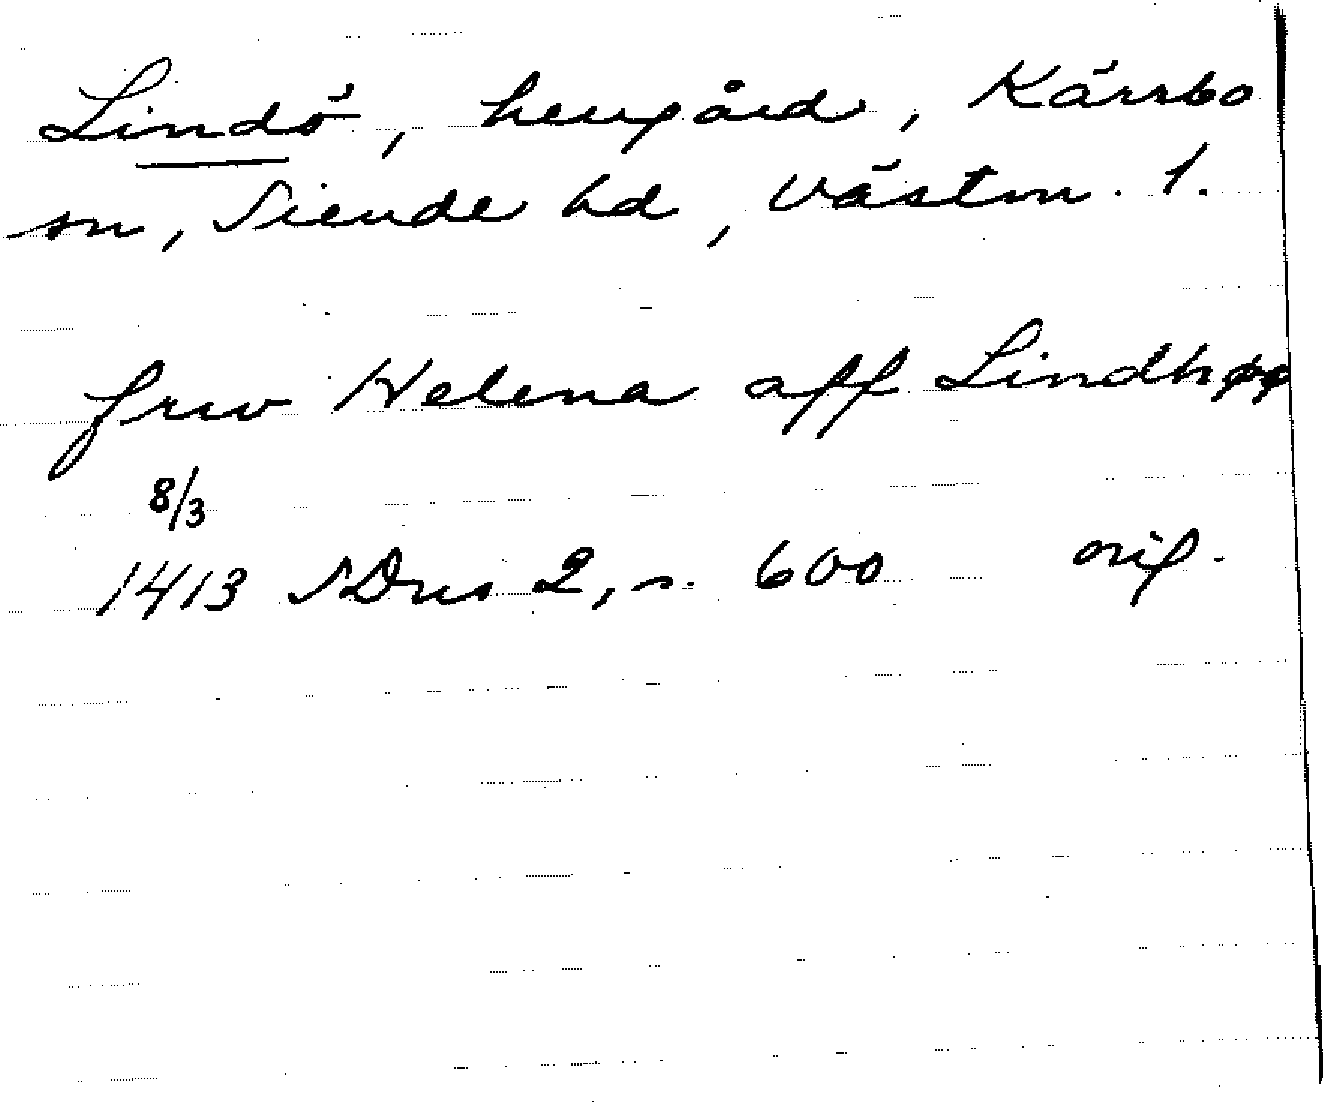 Lindö, herrgård, Kärrbo
sn, Siende hd, Västm. l.
frw Helena aff Lindhøø
8/3
1413 SDns 2, s. 600 orig.